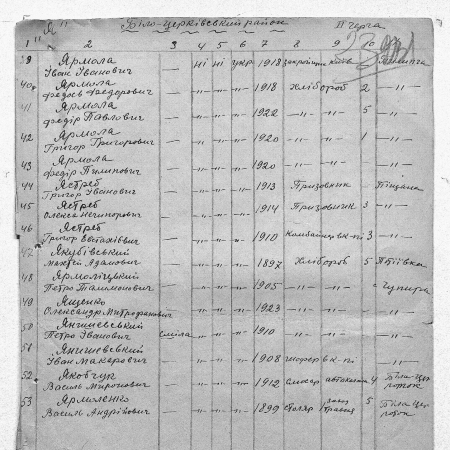 "Я" Біло-Церківський район II черга
1 2 3 4 5 6 7 8 9 10
39 Ярмола Іван Іванович — ні ні укр 1918 закройщик київ
40 Ярмола Федось Федорович — „ „ „ 1918 Хлібороб 2 — „ —
41 Ярмола Федір Павлович — „ „ „ 1922 — „ — 5 — „ —
42 Ярмола Григор Григорович — „ „ „ 1920 — „ — 1 — „ —
43 Ярмола Федір Пилипович — „ „ „ 1920 — „ — — „ —
44 Ястреб Григор Іванович — „ „ „ 1913 Призовник Піщана
45 Ястреб Олекса Нечипорович — „ „ „ 1914 Призовник 3 — „ —
46 Ястреб Григор Евстахієвич — „ „ „ 1910 Комбайнер к-п 3 — „ —
47 Якубівський Адамович — „ „ „ 1897 Хлібороб 5
48 Ярмоліцький Петро — „ „ „ 1905 — „ — Чупира
49 Ященко Олександр Митрофанович — „ „ „ 1923 — „ — — „ —
50 Янишевський Петро Іванович сміла „ „ „ 1910 — „ —
51 Янишевський Іван Макарович — „ „ „ 1908 шофер к-п — „ —
52 Якобчук Василь Миронович — „ „ „ 1912 слюсар 4 Біла Цер
53 Ярмоленко Василь Андрійович — „ „ „ 1899 столяр 5 Біла Цер